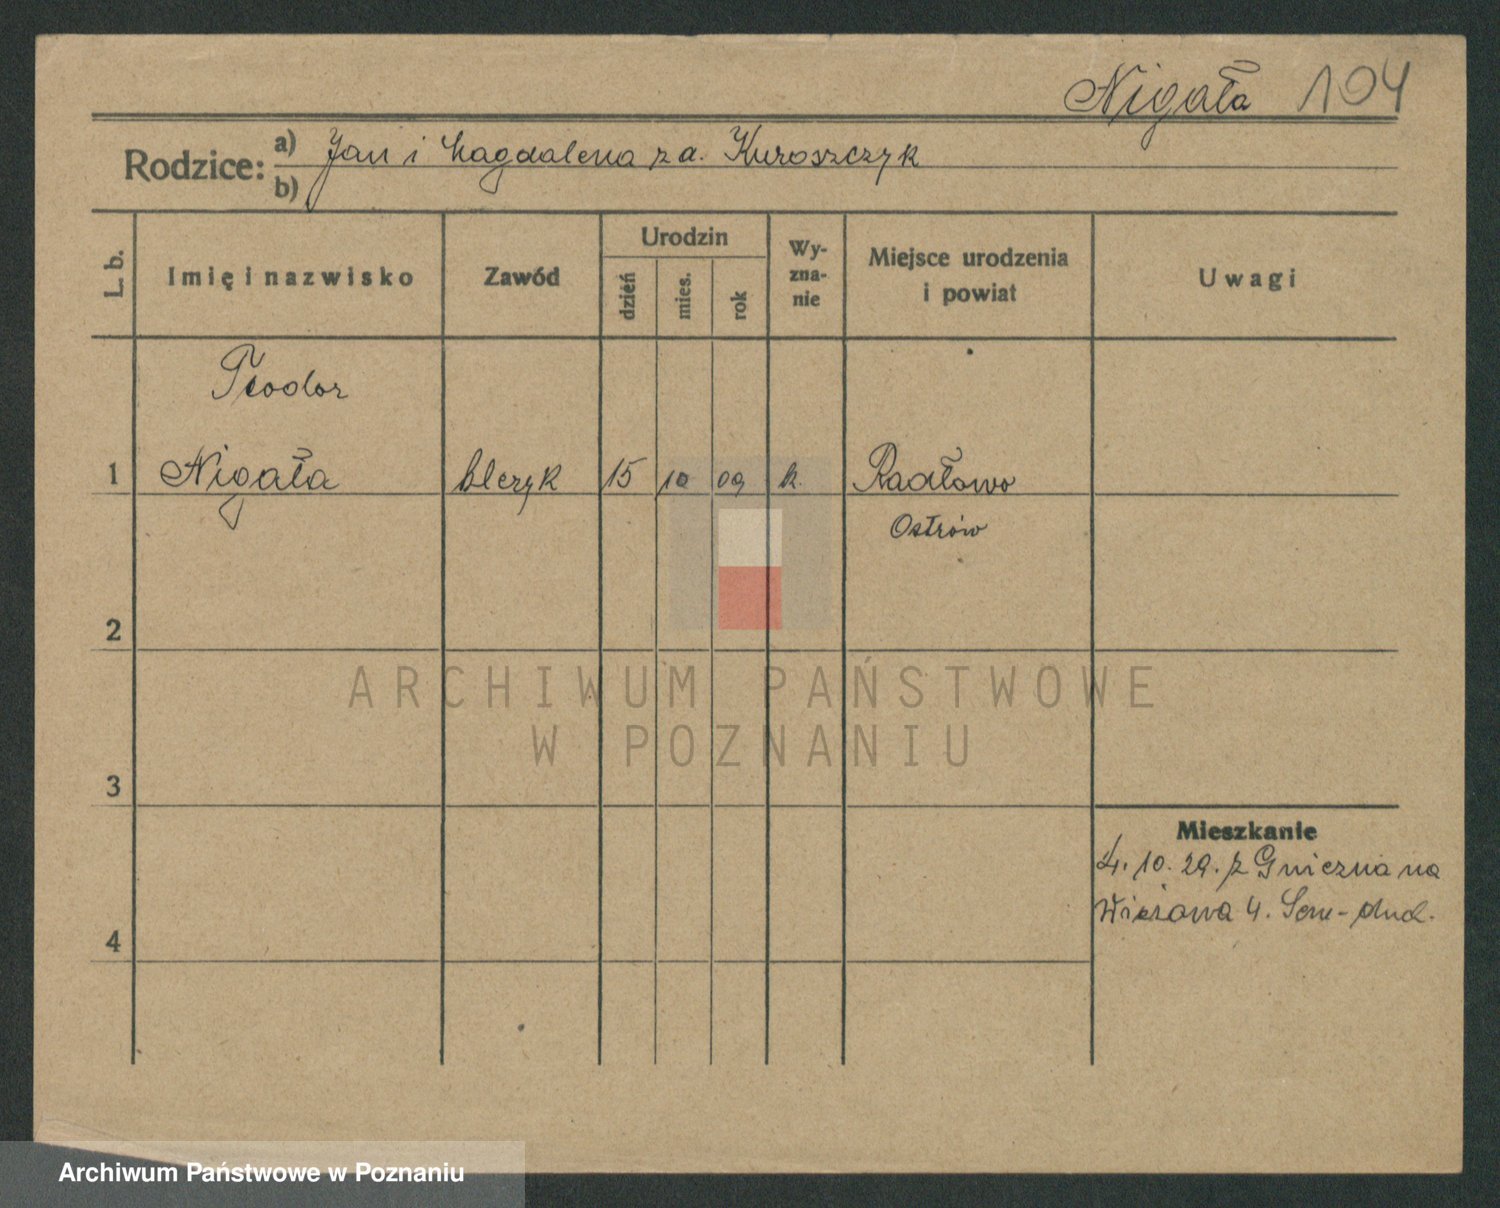 Nigała 104
Rodzice: a) Jan i Magdalena z d. Kuroszczyk
b)
L. b.
Imię i nazwisko
Zawód
Urodzin
dzień
mies.
rok
Wy-
zna-
nie
Miejsce urodzenia
i powiat
Uwagi
Teodor
1 Nigała kleryk 15 10 09 k. Radłowo
Ostrów
2
ARCHIWUM PAŃSTWOWE
W POZNANIU
3
Mieszkanie
4. 10. 29. z Gniezna na
Wieżowa 4. Sem-duch.
4
Archiwum Państwowe w Poznaniu